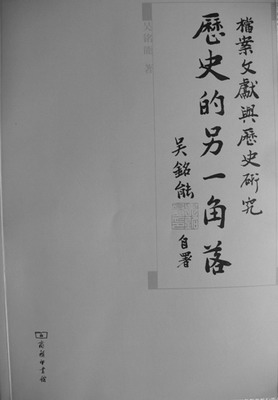 檔案文獻與歷史研究
歷史的另一角落
吳銘能 自署
吳銘能 著
商務印書館